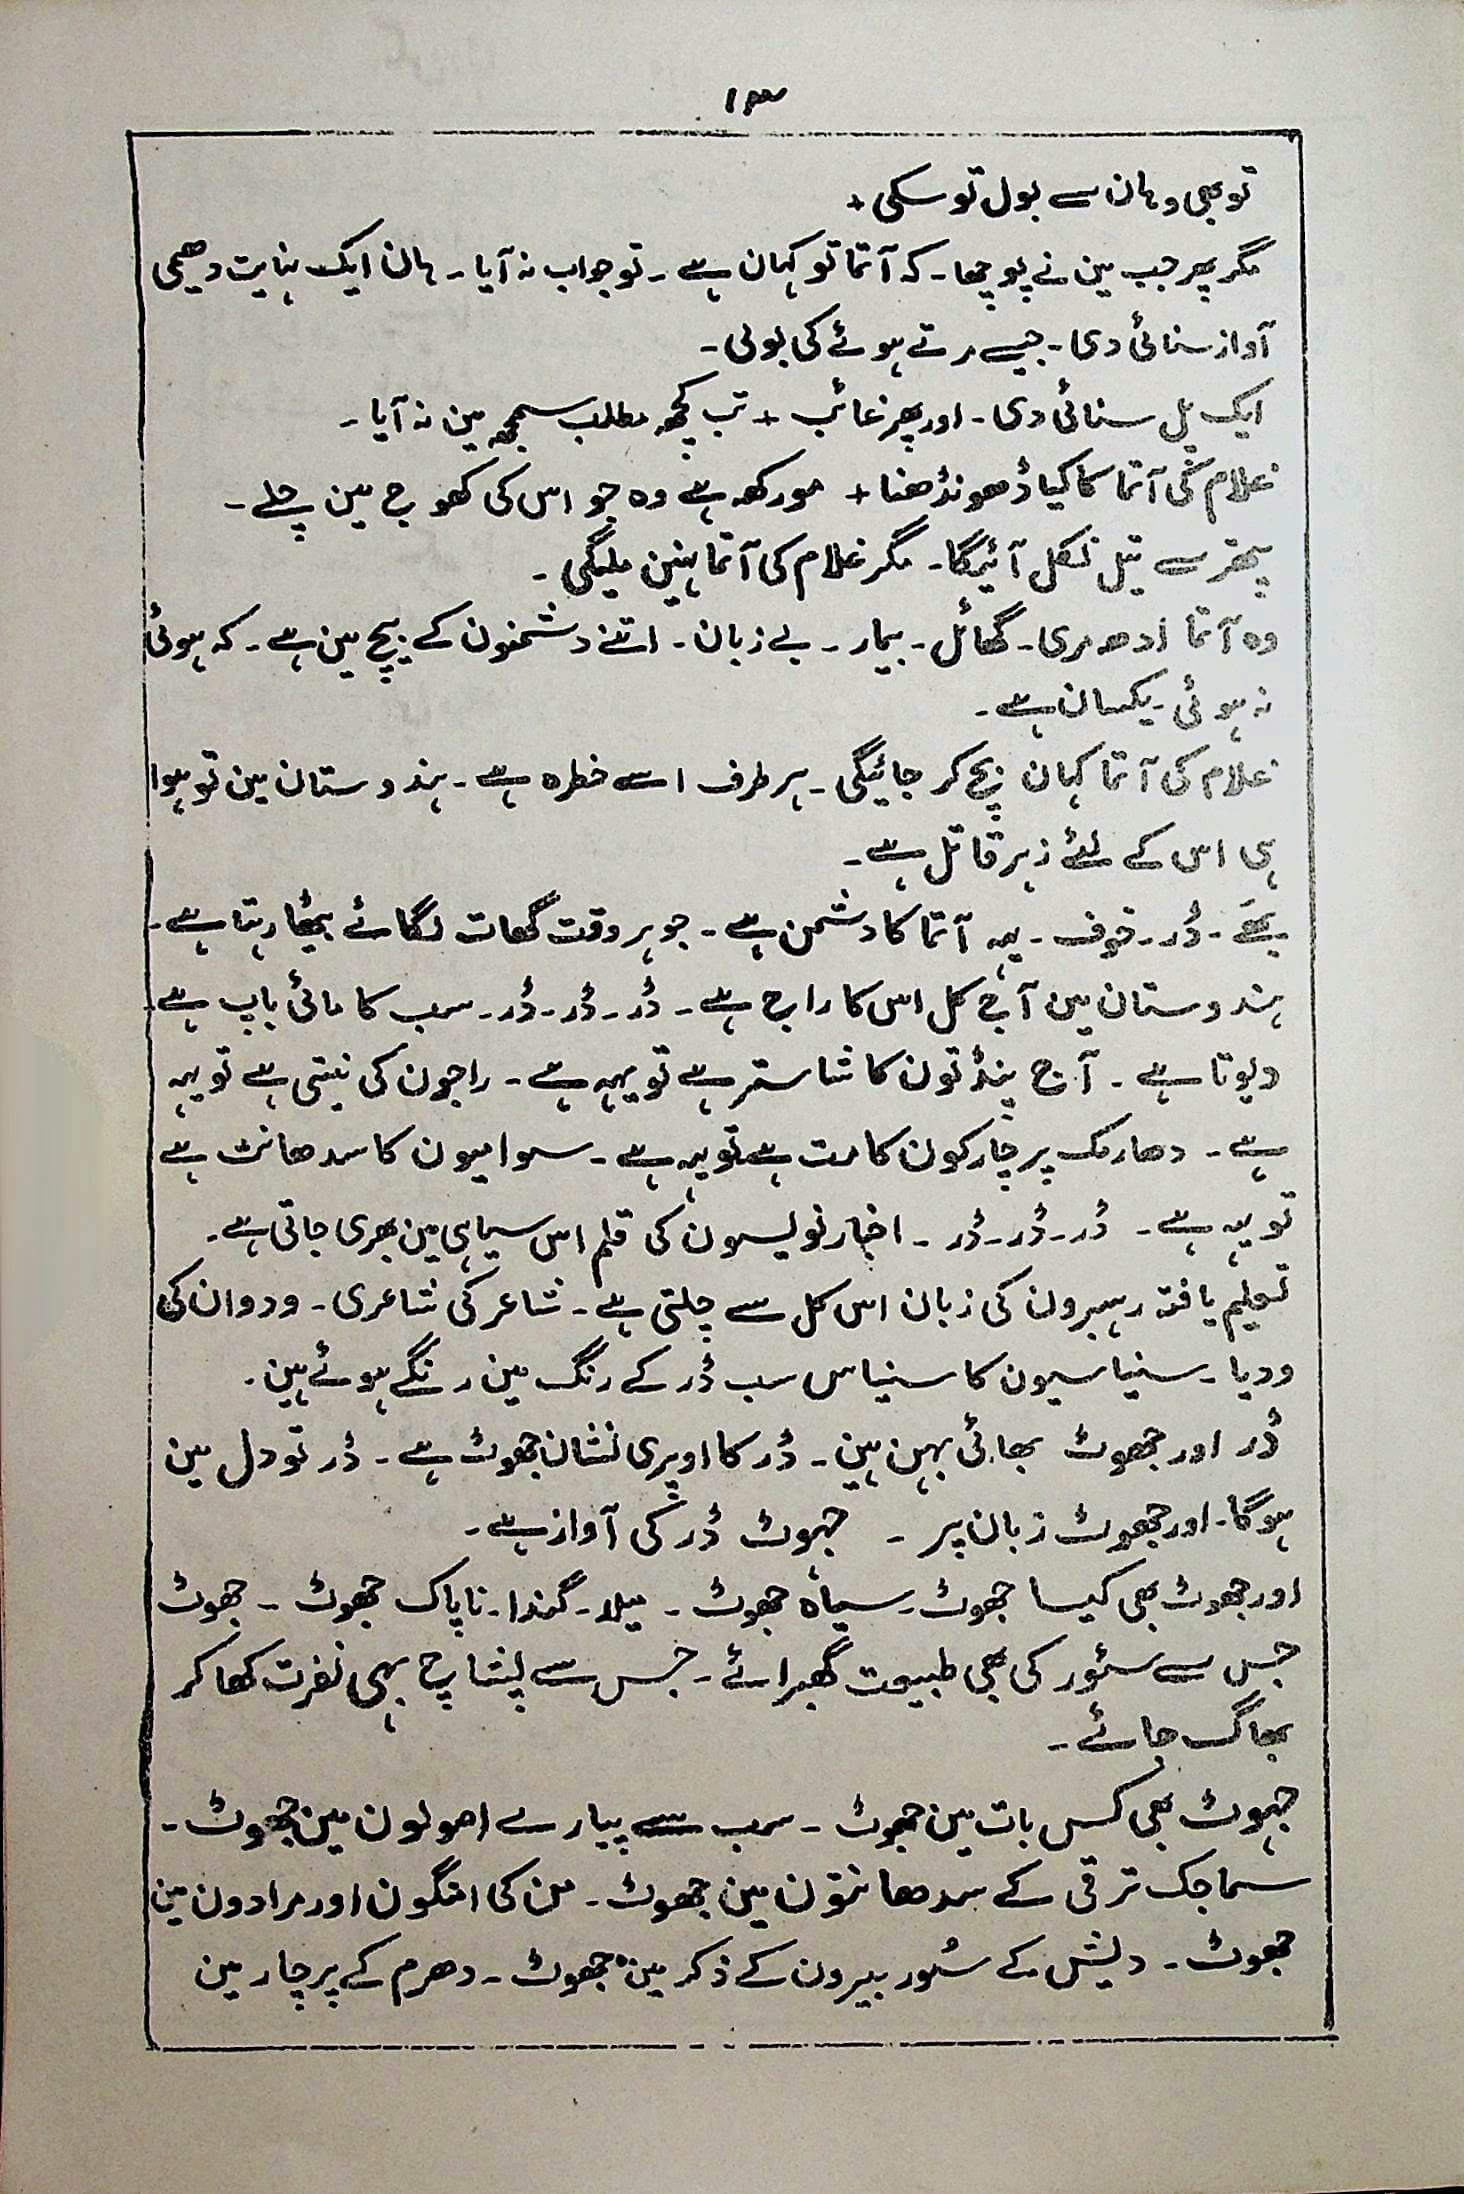 ۱۳
تو بھی وہان سے بول تو سکی +
مگر پھر جب مین نے پوچھا ۔ کہ آتما تو کہان ہے ۔ تو جواب نہ آیا ۔ ہان ایک نہایت دھیمی
آواز سنائی دی ۔ جیسے مرتے ہوئے کی بولی ۔
ایک پل سنائی دی ۔ اور پھر غائب + تب کچھ مطلب سمجھ مین نہ آیا ۔
غلام کی آتما کا کیا ڈھونڈھنا + مورکھ ہے وہ جو اس کی کھوج مین چلے ۔
پتھر سے تیل نکل آئیگا ۔ مگر غلام کی آتما نہین ملیگی ۔
وہ آتما ادھ مری ۔ گھائل ۔ بیمار ۔ بے زبان ۔ اتنے دشمنون کے بیچ مین ہے ۔ کہ ہوئی
نہ ہوئی ۔ یکسان ہے ۔
غلام کی آتما کہان بچ کر جائیگی ۔ ہر طرف اسے خطرہ ہے ۔ ہندوستان مین تو ہوا
ہی اس کے لئے زہر قاتل ہے ۔
بھَے ۔ ڈر ۔ خوف ۔ یہ آتما کا دشمن ہے ۔ جو ہر وقت گھات لگائے بیٹھا رہتا ہے ۔
ہندوستان مین آج کل اس کا راج ہے ۔ ڈر ۔ ڈر ۔ ڈر ۔ سب کا مائی باپ ہے
دیوتا ہے ۔ آج پنڈتون کا شاستر ہے تو یہہ ہے ۔ راجون کی نیتی ہے تو یہ
ہے ۔ دھارمک پرچارکون کا مت ہے تو یہ ہے ۔ سوامیون کا سدھانت ہے
تو یہ ہے ۔ ڈر ۔ ڈر ۔ ڈر ۔ اخبار نویسون کی قلم اس سیاہی مین بھری جاتی ہے ۔
تعلیم یافتہ رہبرون کی زبان اس کل سے چلتی ہے ۔ شاعر کی شاعری ۔ ودوان کی
ودیا ۔ سنیاسیون کا سنیاس سب ڈر کے رنگ مین رنگے ہوئے ہین ۔
ڈر اور جھوٹ بھائی بہن ہین ۔ ڈر کا اوپری نشان جھوٹ ہے ۔ ڈر تو دل مین
ہوگا ۔ اور جھوٹ زبان پر ۔ جہوٹ ڈر کی آواز ہے ۔
اور جھوٹ بھی کیسا جھوٹ ۔ سیاہ جھوٹ ۔ میلا ۔ گندا ۔ ناپاک جھوٹ ۔ جھوٹ
جس سے سئور کی بھی طبیعت گھبرائے ۔ جس سے پشاچ بہی نفرت کھا کر
بھاگ جائے ۔
جہوٹ بھی کس بات مین جھوٹ ۔ سب سے پیارے اصولون مین جھوٹ ۔
سماجک ترقی کے سدھانتون مین جھوٹ ۔ من کی امنگون اور مرادون مین
جھوٹ ۔ دیش کے سُور بیرون کے ذکر مین جھوٹ ۔ دھرم کے پرچار مین